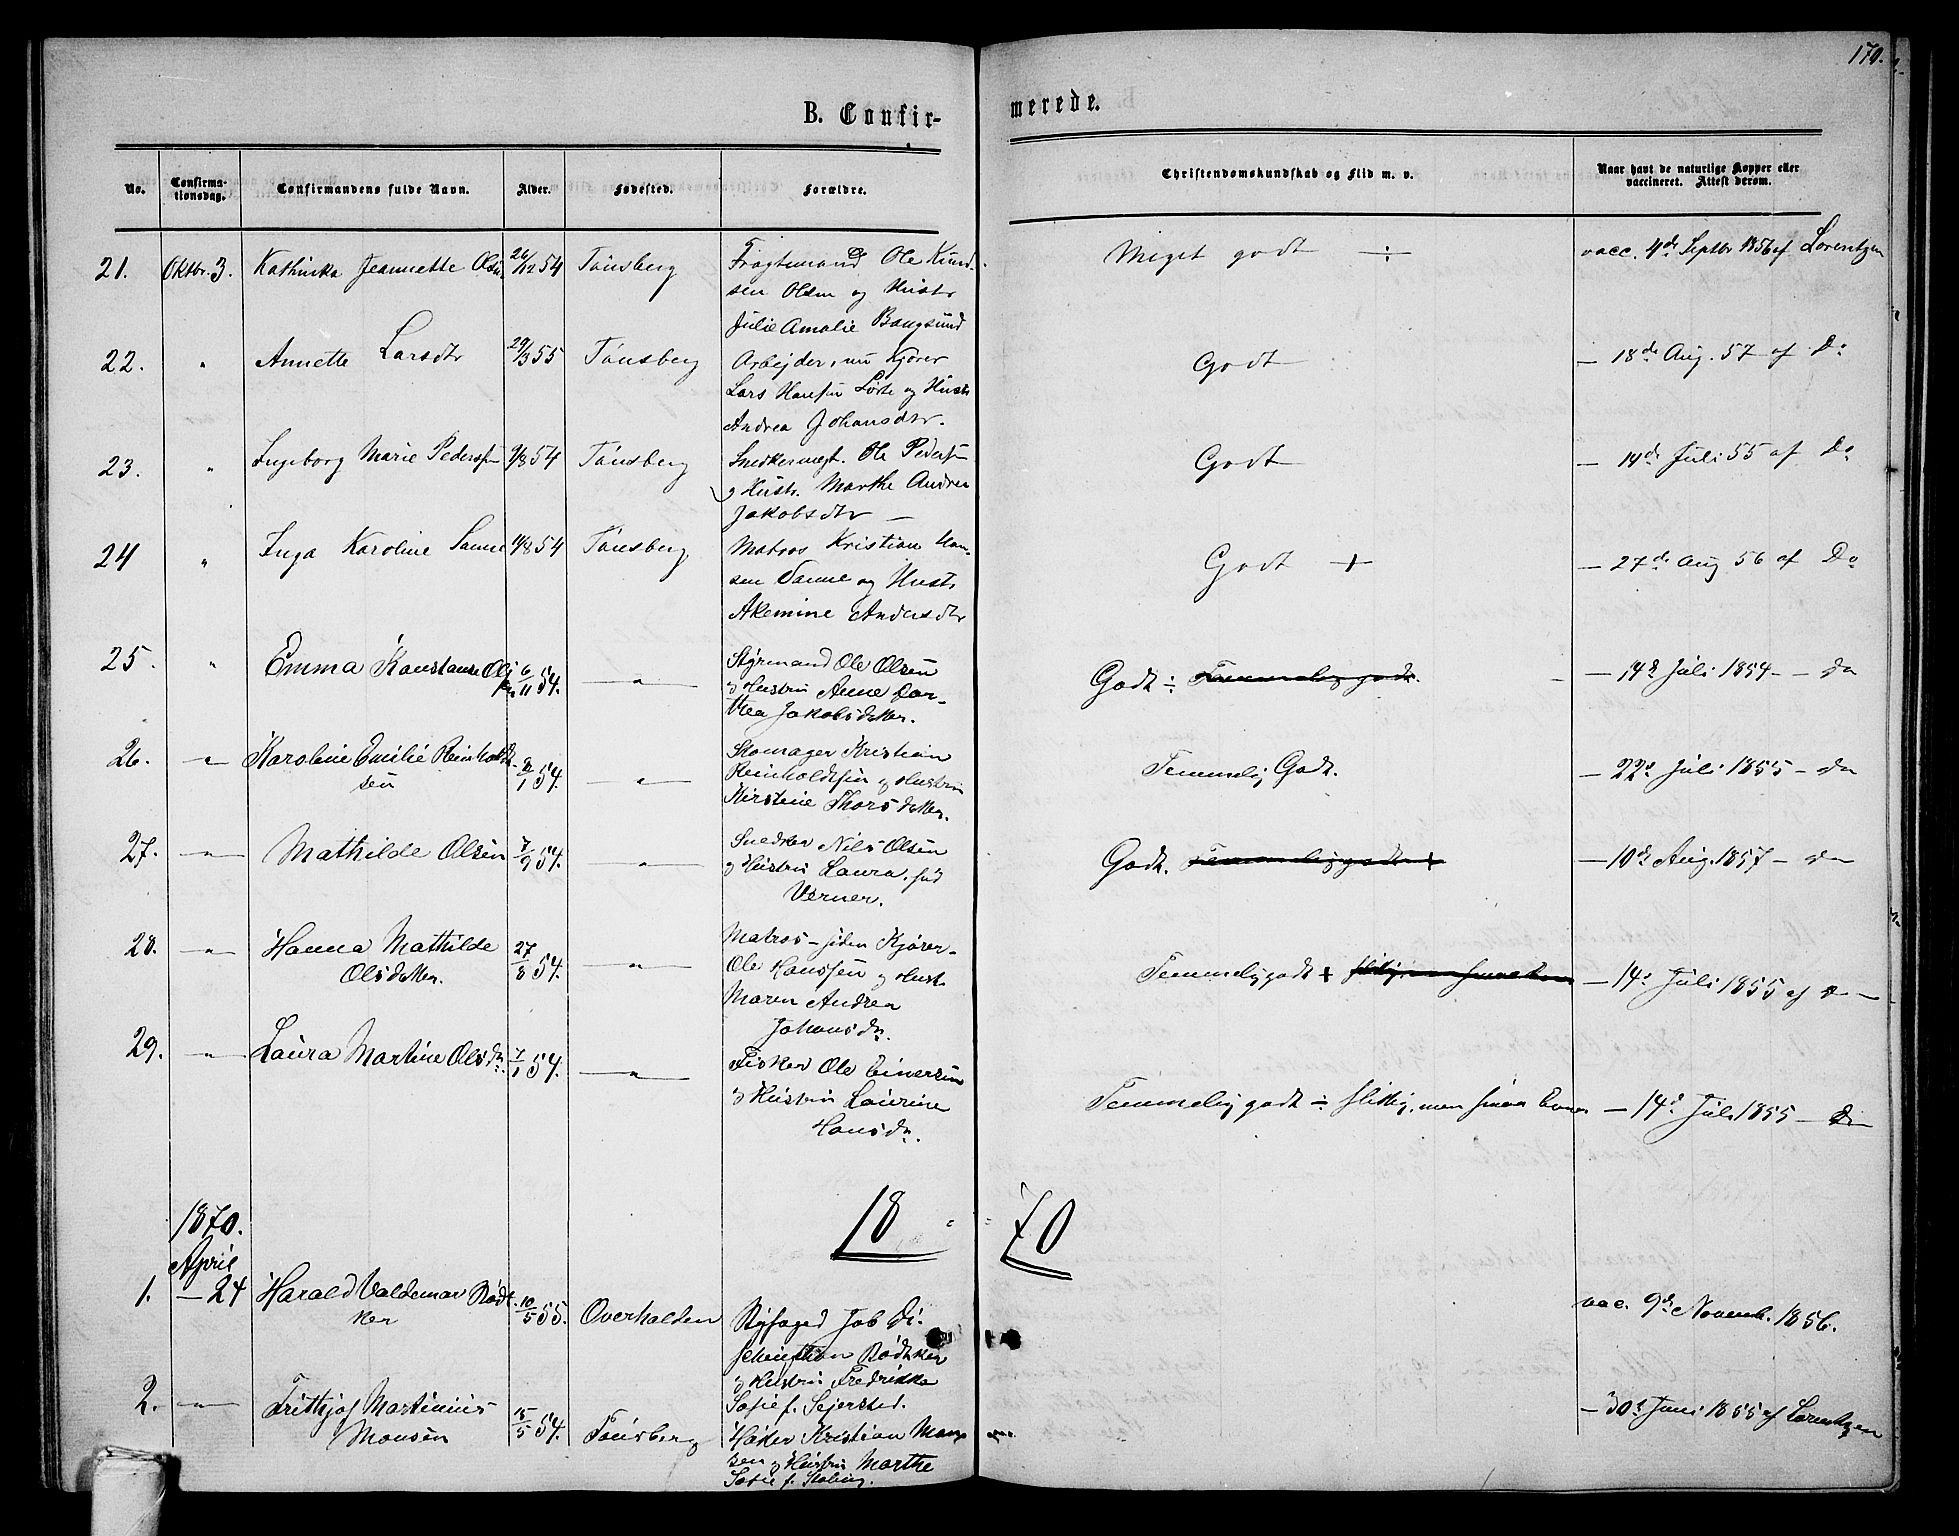 170.
B. Confir-
merede.
No.
Confirma-
tionsdag.
Confirmandens fulde Navn.
Alder.
Fødested.
Forældre.
Christendomskundskab og Flid m. v.
Naar havt de naturlige Kopper eller
vaccineret. Attest derom.
21. Oktbr. 3. Kathinka Jeannette Olsen 26/12 54 Tønsberg Fragtemand Ole Knud- Meget godt ÷ vacc. 4de Septbr 1856 af Lorentzen
sen Olsen og Hustr
Julie Amalie Bangsund
22. " Annette Larsdtr 29/3 55 Tønsberg Arbejder, nu Kjører Godt — 18de Aug. 57 af Do
Lars Hansen og Hustr
Andrea Johansdtr.
23. " Ingeborg Marie Pedersen 9/8 54 Tønsberg Snedkermest. Ole Pedersen Godt — 14de Juli 55 af Do
og Hustr. Marthe Andrea
Jakobsdtr —
24 " Inga Karoline Sanne 11/8 54 Tønsberg Matros Kristian Han- Godt + — 27de Aug 56 af Do
sen Sanne og Hustr
Akemine Andersdtr
25. " Emma Konstanse Ol- 6/11 54. — " — Styrmand Ole Olsen Godt ÷ Temmelig godt. — 14de Juli 1854 — do
sen og Hustru Anne Dor-
thea Jakobsdatter.
26. — " — Karoline Emilie Reinholdt- 8/1 54. — " — Skomager Kristian Temmelig Godt. — 22de Juli 1855 — do
sen Reinholdtsen og Hustru
Kirstine Thorsdatter.
27. — " — Mathilde Olsen 7/9 54. — " — Snedker Nils Olsen Godt. Temmelig godt + — 10de Aug. 1857 — do
og Hustru Laura, fød
Verner.
28. — " — Hanna Mathilde 27/8 54. — " — Matros — siden Kjører — Temmelig godt + flittig, men smaa Evner — 14de Juli 1855 af do —
Olsdatter. Ole Hanssen og Hust.
Maren Andrea
Johansdr.
29. — " — Laura Martine Olsdr. 7/1 54. — " — Fisker Ole Einersen Temmelig godt ÷ flittig, men smaa Evner — 14de Juli 1855 — do
og Hustru Laurine
Hansdr.
18 = = 70
1870.
April
1. — 24 Harald Valdemar Bødt- 10/5 55. Overhalden Byfoged Job Di- vac. 9de Novemb. 1856.
ker
Bødtker
og Hustru Fredrikke
Sofie f. Sejersted.
2. — " — Frithjof Martinius 15/5 54. Tønsberg Høker Kristian Mon- — 30te Juni 1855 af Lorentzen
Monsen
sen og Hustru Marthe
Sofie f.